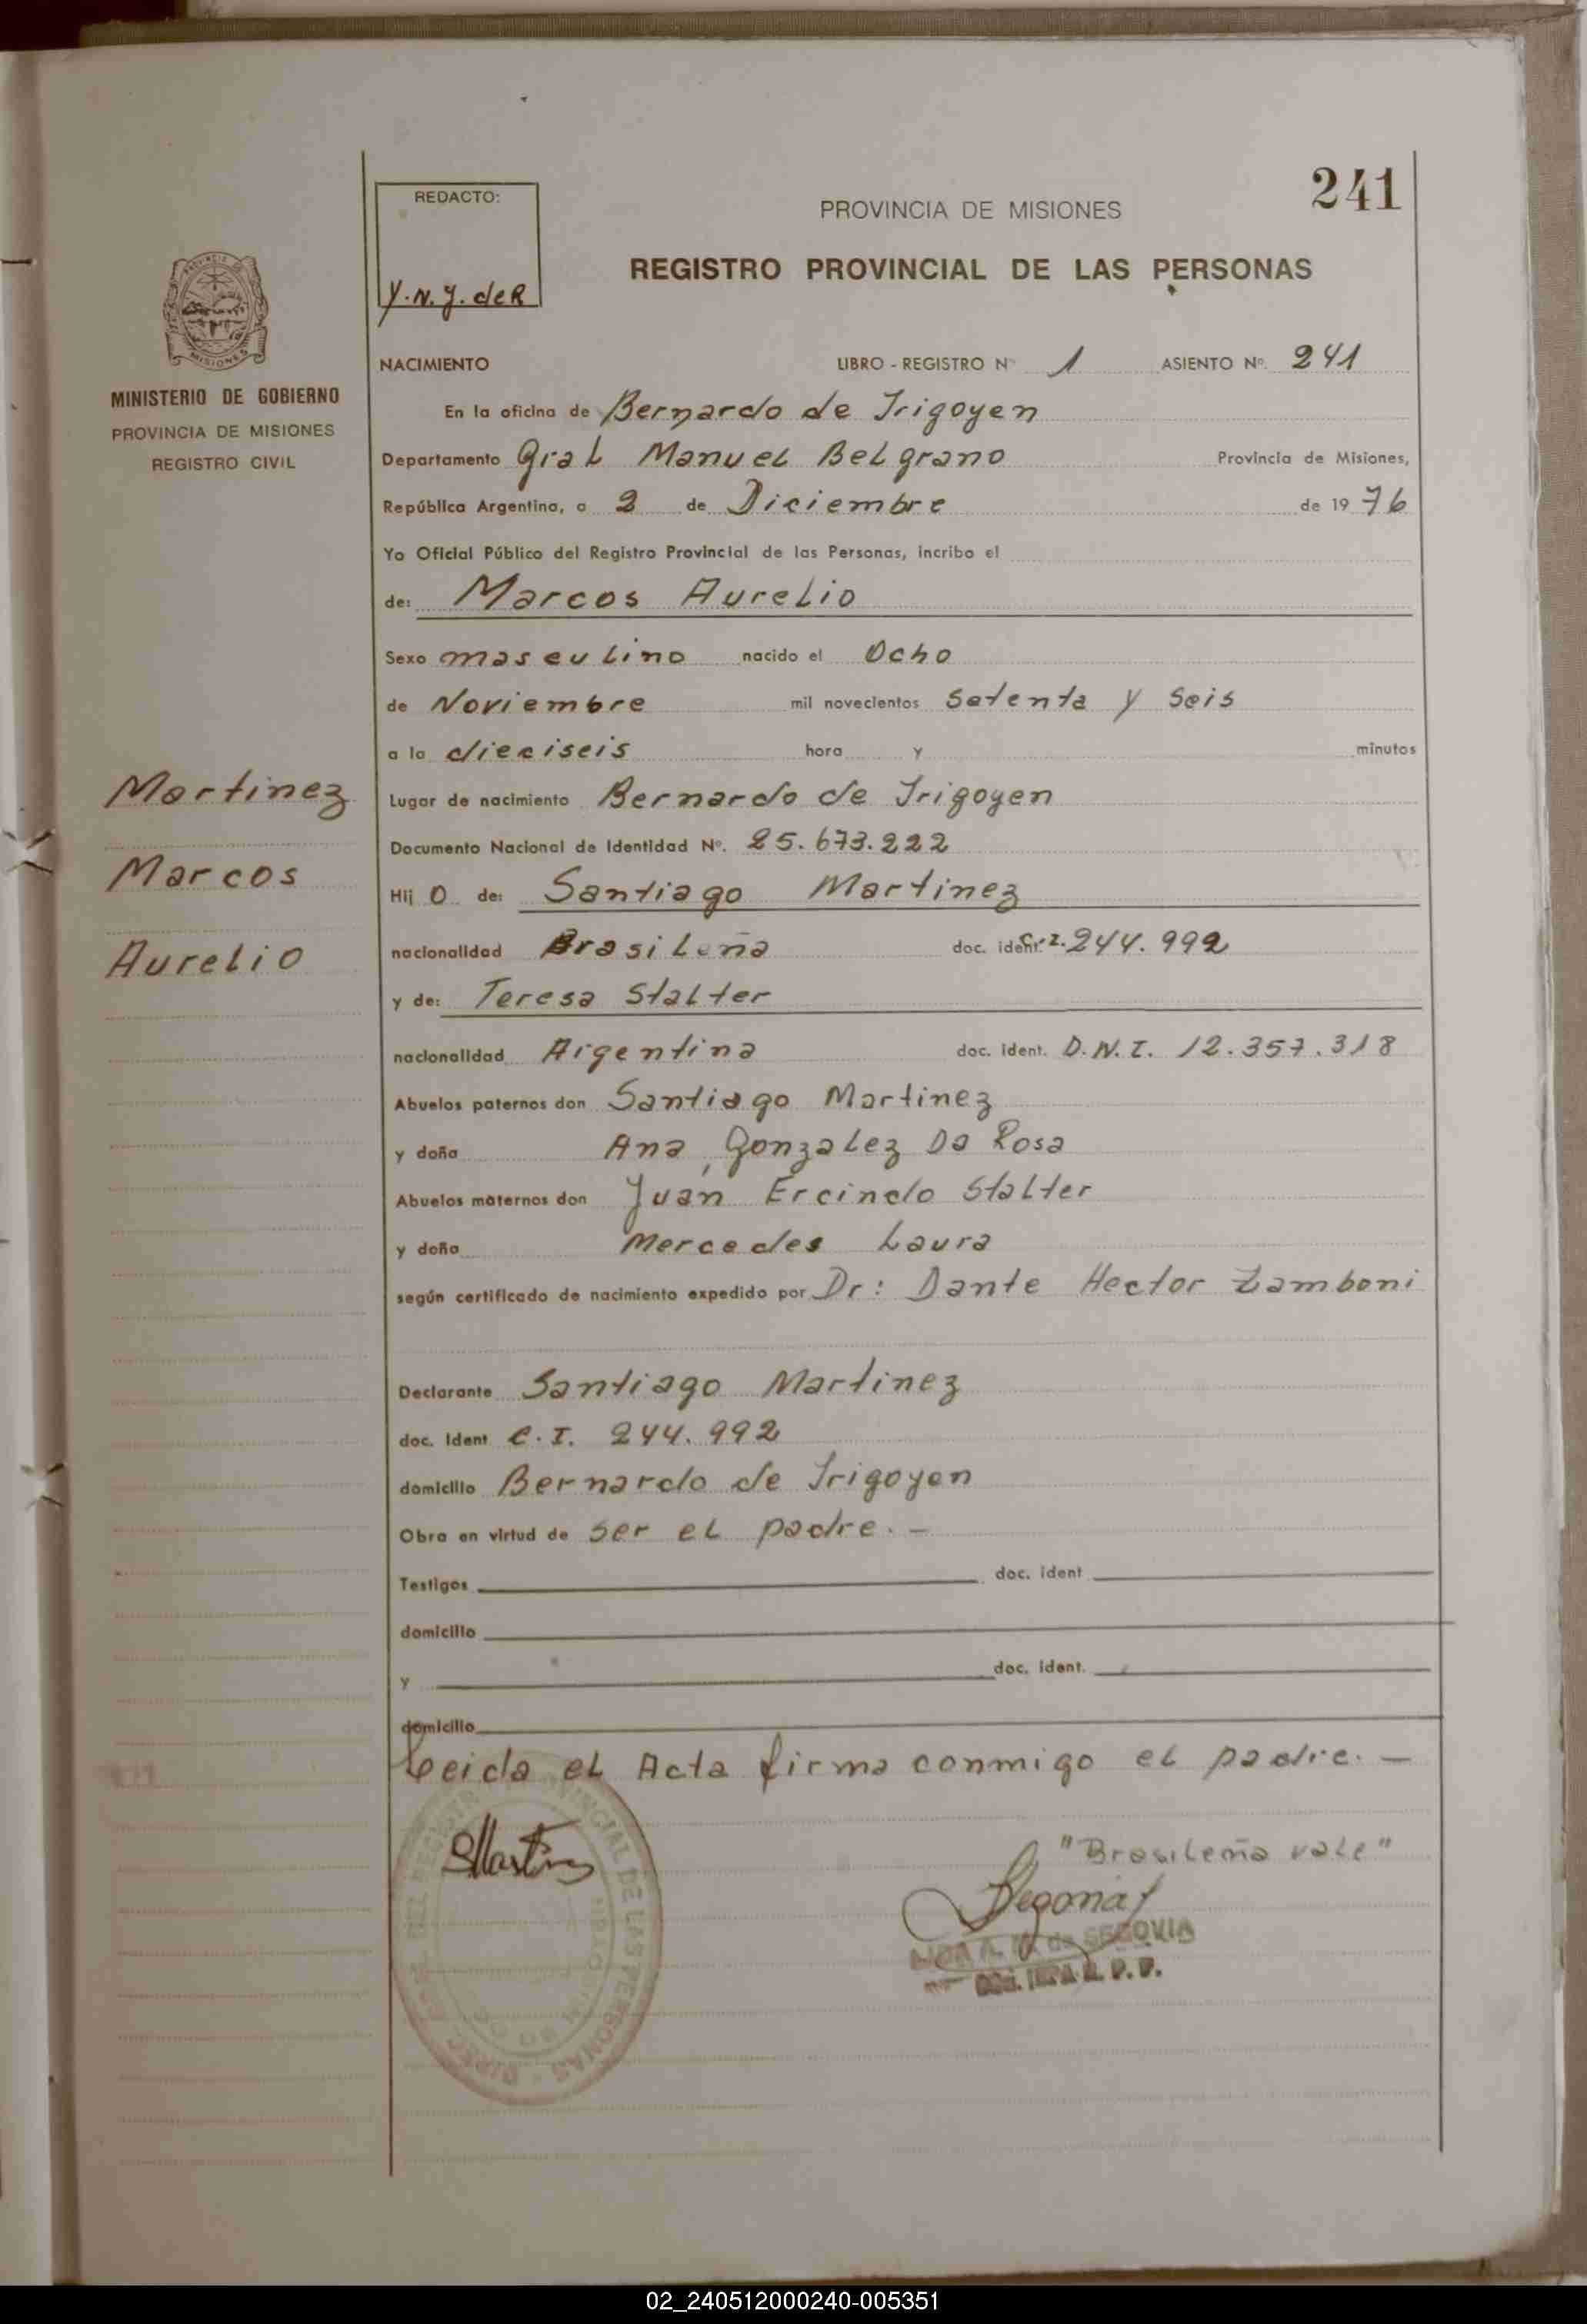 241
REDACTO:
Y.N.Y. de R
PROVINCIA DE MISIONES
REGISTRO PROVINCIAL DE LAS PERSONAS
MISIONES
MINISTERIO DE GOBIERNO
PROVINCIA DE MISIONES
REGISTRO CIVIL
Martinez
Marcos
Aurelio
NACIMIENTO LIBRO - REGISTRO Nº 1 ASIENTO Nº. 241
En la oficina de Bernardo de Irigoyen
Departamento Gral Manuel Belgrano Provincia de Misiones,
República Argentina, a 2 de Diciembre de 19 76
Yo Oficial Público del Registro Provincial de las Personas, incribo el
de: Marcos Aurelio
Sexo masculino nacido el Ocho
de Noviembre mil novecientos Setenta y Seis
a la dieciseis hora y minutos
Lugar de nacimiento Bernardo de Irigoyen
Documento Nacional de Identidad Nº. 25.673.222
Hij o de: Santiago Martinez
nacionalidad Brasileña doc. ident. C.I. 244.992
y de: Teresa Stalter
nacionalidad Argentina doc. ident. D.N.I. 12.357.318
Abuelos paternos don Santiago Martinez
y doña Ana Gonzalez Da Rosa
Abuelos maternos don Juan Ercindo Stalter
y doña Mercedes Laura
según certificado de nacimiento expedido por Dr: Dante Hector Zamboni
Declarante Santiago Martinez
doc. Ident C.I. 244.992
domicilio Bernardo de Irigoyen
Obra en virtud de ser el padre. -
Testigos doc. ident
domicilio
y doc. ident.
domicilio
Leida el Acta firma conmigo el padre. -
SMartinez
"Brasileña vale"
de SEGOVIA
R. P. P.
DEL REGISTRO PROVINCIAL DE LAS PERSONAS
02_240512000240-005351